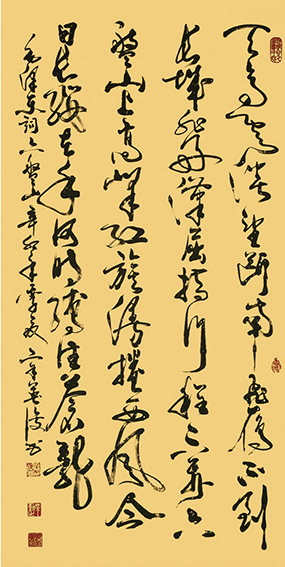 天高雲淡望断南飛雁不到
长城非好漢屈指行程二万六
盤山上高峰红旗漫捲西风今
日长缨在手何时缚住苍龍
毛泽东詞六盤山辛卯年季夏
书